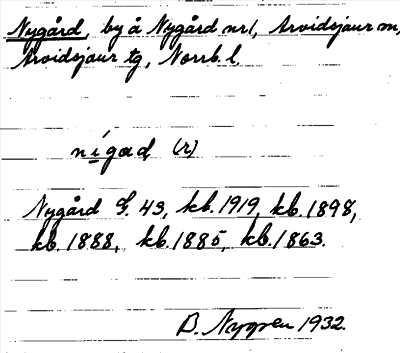 Nygård, by å Nygård nr 1, Arvidsjaur sn,
Arvidsjaur tg, Norrb. l.
nígaɑḍ (r)
Nygård G. 43, kb. 1919, kb. 1898,
kb. 1888, kb. 1885, kb. 1863.
B. Nygren 1932.